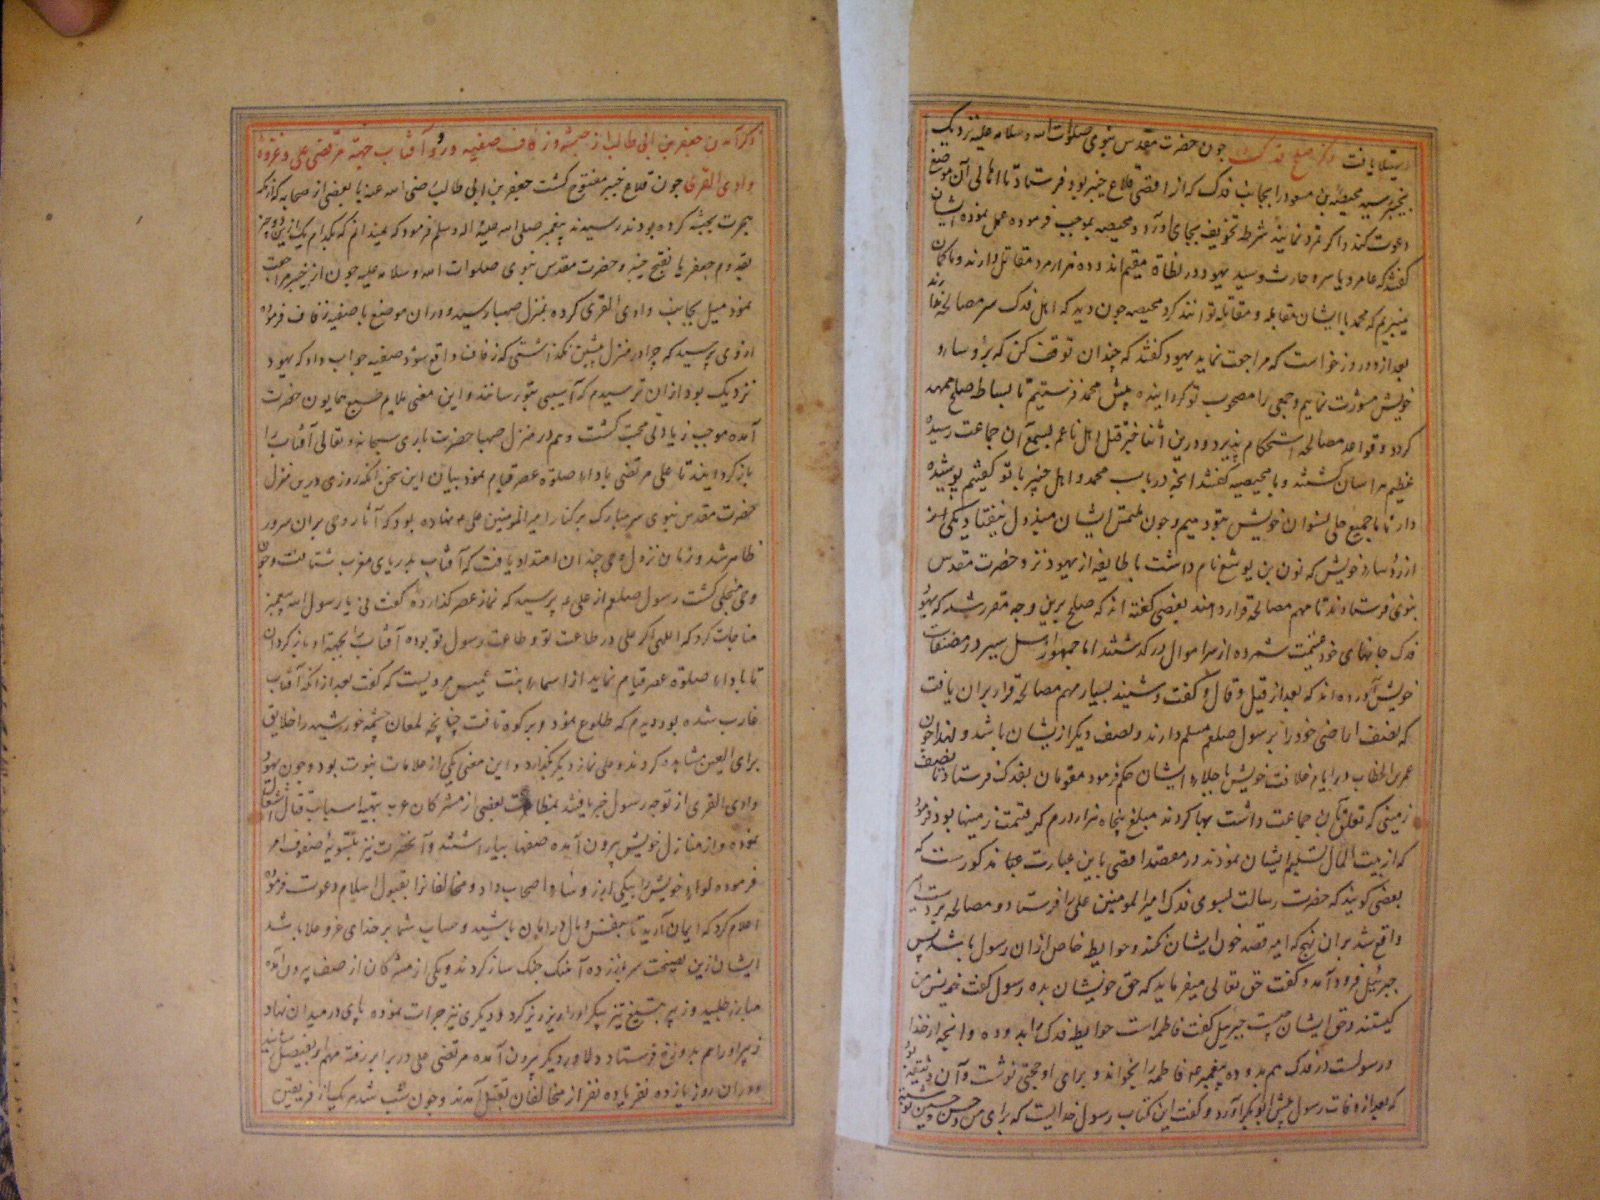 استیلا یافت ذکر صلح فدک چون حضرت مقدس نبوی صلوات الله و سلامه علیه نزدیک
بخیبر رسید محیصة بن مسعود را بجانب فدک که از اقصی قلاع خیبر بود فرستاد تا اهالی آن موضع
دعوت کند و اگر تمرد نمایند شرط تخویف بجای آورد و محیصه بموجب فرموده عمل نموده ایشان
گفتند که عامر و یاسر و حارث و سید یهود در نطاة مقیم‌اند و ده هزار مرد مقاتل دارند و ما گمان
نمیبریم که محمد با ایشان مقابله و مقاتله تواند کرد محیصه چون دید که اهل فدک سر مصالحه ندارند
بعد از دو روز خواست که مراجعت نماید یهود گفتند که چندان توقف کن که با رؤسا
خویش مشورت نماییم و جمعی را مصحوب تو گردانیده پیش محمد فرستیم تا بساط صلح ممهد
گردد و قواعد مصالحه استحکام پذیرد و درین اثنا خبر قتل اهل ناعم بسمع آن جماعت رسیده
عظیم هراسان گشتند و با محیصه گفتند آنچه در باب محمد و اهل خیبر با تو گفتیم پوشیده
دار تا ما جمیع حلی نسوان خویش بتو دهیم و چون ملتمس ایشان مبذول نیفتاد یکی از
از رؤساء خویش که نون بن یوشع نام داشت با طایفه از یهود نزد حضرت مقدس
نبوی فرستادند تا مهم مصالحه قرار دهند بعضی گفته‌اند که صلح برین وجه مقرر شد که یهود
فدک جانهای خود غنیمت شمرده از سر اموال درگذشتند اما جمهور اهل سیر در مصنفات
خویش آورده‌اند که بعد از قیل و قال و گفت و شنید بسیار مهم مصالحه قرار بران یافت
که نصف اراضی خود را بر رسول صلعم مسلم دارند و نصف دیگر از یشان باشد و لهذا چون
عمر بن الخطاب در ایام خلافت خویش باجلاء ایشان حکم فرمود مقومان بفدک فرستاد تا نصف
زمینی که تعلق بآن جماعت داشت بها کردند مبلغ پنجاه هزار درم که قیمت زمینها بود فرمود
که از بیت المال تسلیم ایشان نمودند در مقصد اقصی باین عبارت مذکورست که
بعضی گویند که حضرت رسالت بسوی فدک امیر المومنین علی را فرستاد و مصالحه بر دست امیر
واقع شد بران نهج که امیر قصد خون ایشان نکند و حوایط خاص از ان رسول باشد پس
جبرئیل فرود آمد و گفت حق تعالی میفرماید که حق خویشان بده رسول گفت خویش من
کیستند و حق ایشان چیست جبرئیل گفت فاطمه است حوایط فدک را بدو ده و آنچه از خدا
و رسولست در فدک هم بدو ده پیغمبر فاطمه را بخواند و برای او حجتی نوشت و آن وثیقه بود
که بعد از وفات رسول پیش ابوبکر آورد و گفت این کتاب رسول خدایست که برای من و حسن و حسین نوشته
ذکر آمدن جعفر بن ابی طالب از حبشه و زفاف صفیه و رد آفتاب جهة مرتضی علی و غزوهٔ
وادی القری چون قلاع خیبر مفتوح گشت جعفر بن ابی طالب رضی الله عنه با بعضی از صحابه که از مکه
هجرت بحبشه کرده بودند رسیدند پیغمبر صلی الله علیه و اله وسلم فرمود که نمیدانم که بکدام یک ازین دو چیز
بقدوم جعفر یا بفتح خیبر و حضرت مقدس نبوی صلوات الله و سلامه علیه چون از خیبر مراجعت
نمود میل بجانب وادی القری کرده بمنزل صهبا رسید و در ان موضع با صفیه زفاف فرموده
از وی پرسید که چرا در منزل پیشین نگذاشتی که زفاف واقع شود صفیه جواب داد که یهود
نزدیک بود از ان ترسیدم که آسیبی بتو رسانند و این معنی ملایم طبع همایون حضرت
آمده موجب زیادتی محبت گشت و هم در منزل صهبا حضرت باری سبحانه و تعالی آفتاب را
بازگردانید تا علی مرتضی باداء صلوة عصر قیام نمود بیان این سخن آنکه روزی درین منزل
حضرت مقدس نبوی سر مبارک بر کنار امیر المومنین علی نهاده بود که آثار وحی بران سرور
ظاهر شد و زمان نزول وحی چندان امتداد یافت که آفتاب بدریای مغرب شتافت و چون
وحی منجلی گشت رسول صلعم از علی پرسید که نماز عصر گذاردهٔ گفت نی یا رسول الله پیغمبر
مناجات کرد که اللهی اگر علی در طاعت تو و طاعت رسول تو بوده آفتاب را بجهة او باز گردان
تا باداء صلوة عصر قیام نماید از اسماء بنت عمیس مرویست که گفت بعد از انکه آفتاب
غارب شده بود دیدم که طلوع نمود و بر کوه تافت چنانچه لمعان چشمه خورشید را خلایق
برای العین مشاهده کردند و علی نماز دیگر بگزارد و این معنی یکی از علامات نبوت بود و چون یهود
وادی القری از توجه رسول خبر یافتند بمظاهرت بعضی از مشرکان عرب بتهیه اسباب قتال اشتغال
نموده و از منازل خویش بیرون آمده صفها بیاراستند و آنحضرت نیز بتسویهٔ صفوف امر
فرموده لواء خویش را بیکی از رؤساء اصحاب داد و مخالفانرا بقبول اسلام دعوت فرموده
اعلام کرد که ایمان آرید تا بنفس و مال در امان باشید و حساب شما بر خدای عز و علا باشد
ایشان ازین نصیحت سر باز زده آهنگ جنگ ساز کردند و یکی از مشرکان از صف بیرون آمده
مبارز طلبید و زبیر بتیغ تیز پیکر او را ریز ریز کرد و دیگری نیز جرات نموده پای در میدان نهاد
زبیر او را هم بدوزخ فرستاد دلاور دیگر بیرون آمده مرتضی علی در برابر رفته مهم او بفیصل رسانید
و دران روز یازده نفر یا ده نفر از مخالفان بقتل آمدند و چون شب شد هر یک از فریقین